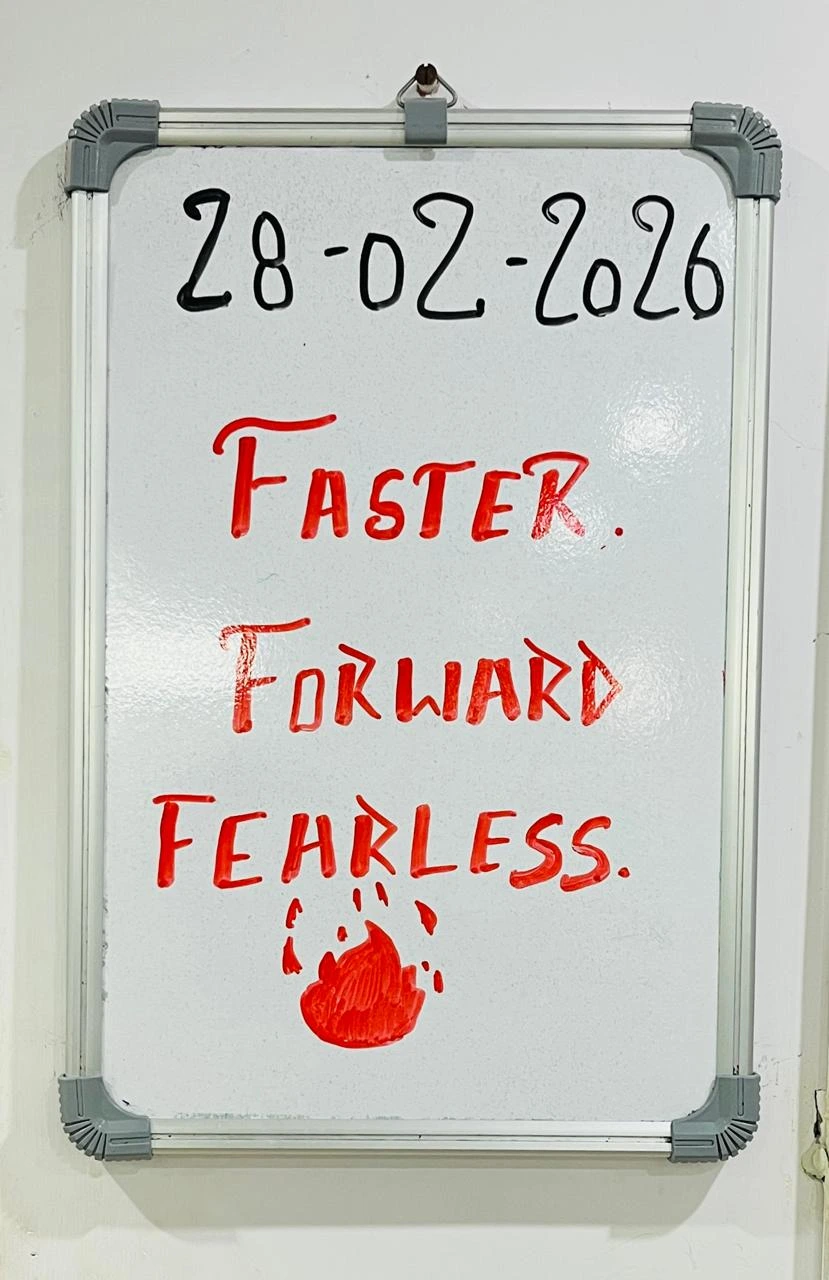 28-02-2026
FASTER.
FORWARD
FEARLESS.